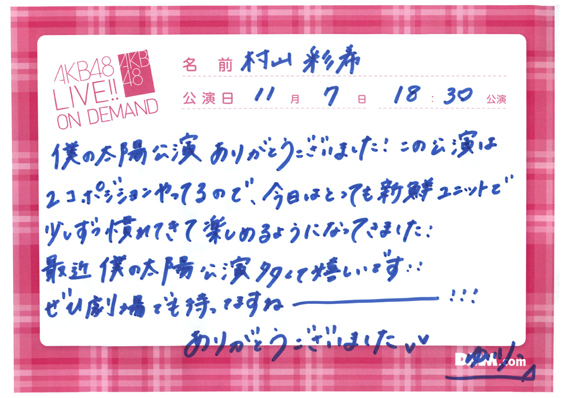 AKB48
LIVE!!
ON DEMAND
AKB
48
名前 村山彩希
公演日 11月7日 18:30公演
僕の太陽公演ありがとうございました!この公演は
2コポジションやってるので、今日はとっても新鮮ユニットで
少しずつ慣れてきて楽しめるようになってきました!
最近僕の太陽公演多くて嬉しいです!!
ぜひ劇場でも待ってますねー!!!
ありがとうございました
.com